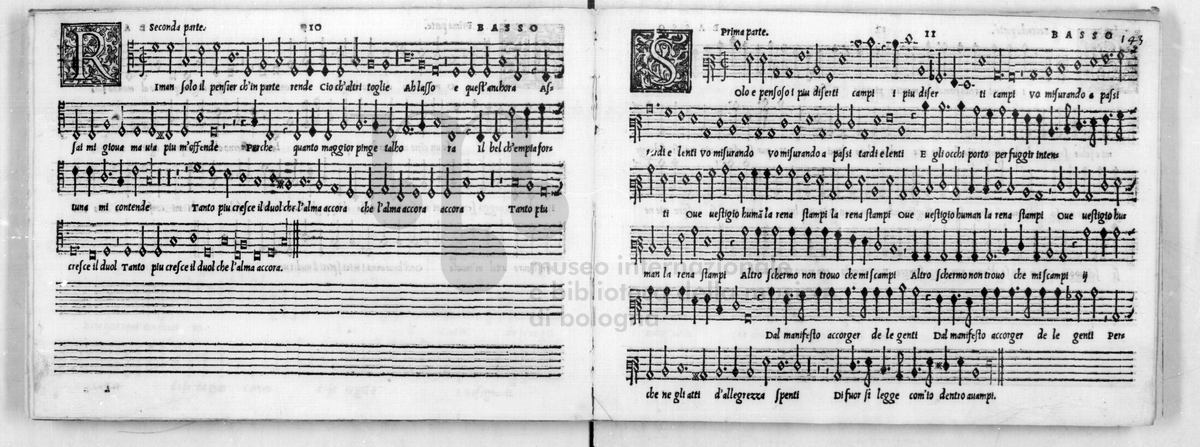 Seconda parte. 10 BASSO
R Iman solo il pensier ch'in parte rende Cio ch'altri toglie Ah lasso e quest'anchora As-
sai mi gioua ma uia piu m'offende Perche quanto maggior pinge talho ra Il bel ch'empia for-
tuna mi contende Tanto piu cresce il duol che l'alma accora che l'alma accora accora Tanto piu
cresce il duol Tanto piu cresce il duol che l'alma accora.
Prima parte. 11 BASSO 143
S Olo e pensoso i piu diserti campi i piu diser ti campi vo misurando a passi
tardi e lenti vo misurando vo misurando a passi tardi e lenti E gli occhi porto per fuggir inten-
ti Oue uestigio humã la rena stampi la rena stampi Oue uestigio human la rena stampi Oue uestigio hu-
man la rena stampi Altro schermo non trouo che mi scampi Altro schermo non trouo che mi scampi ij
Dal manifesto accorger de le genti Dal manifesto accorger de le genti Per-
che ne gli atti d'allegrezza spenti Di fuor si legge com'io dentro auampi.
museo internazionale
e biblioteca della musica
di bologna